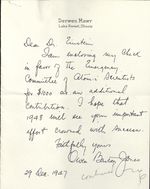 Derwen Mawr
Lake Forest, Illinois
Dear Dr. Einstein
I am enclosing my check
in favor of the Emergency
Committee of Atomic Scientists
for $1000 as an additional
Contribution. I hope that
1948 will see your important
effort crowned with success.
Faithfully yours
Jones
29 Dec 1947